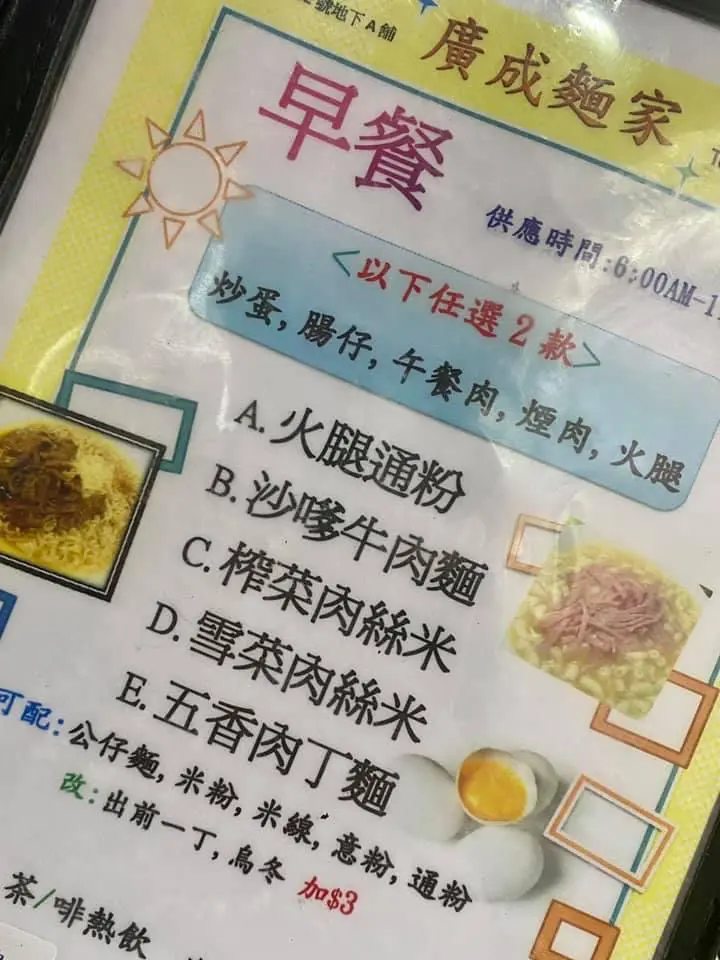 號地下A舖
廣成麵家
早餐
供應時間:6:00AM-1
<以下任選2款>
炒蛋,腸仔,午餐肉,煙肉,火腿
A.火腿通粉
B.沙嗲牛肉麵
C.榨菜肉絲米
D.雪菜肉絲米
E.五香肉丁麵
可配:公仔麵,米粉,米線,意粉,通粉
改:出前一丁,烏冬 加$3
茶/啡熱飲